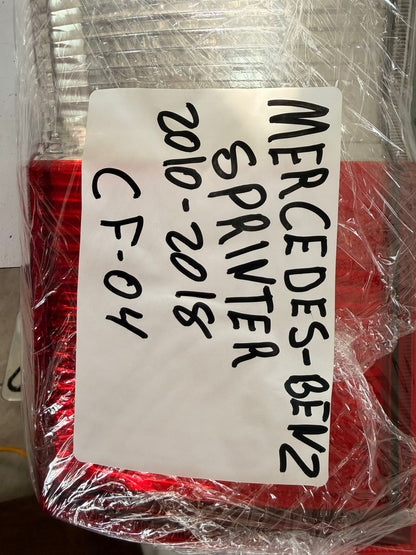 MERCEDES-BENZ
SPRINTER
2010-2018
CF-04